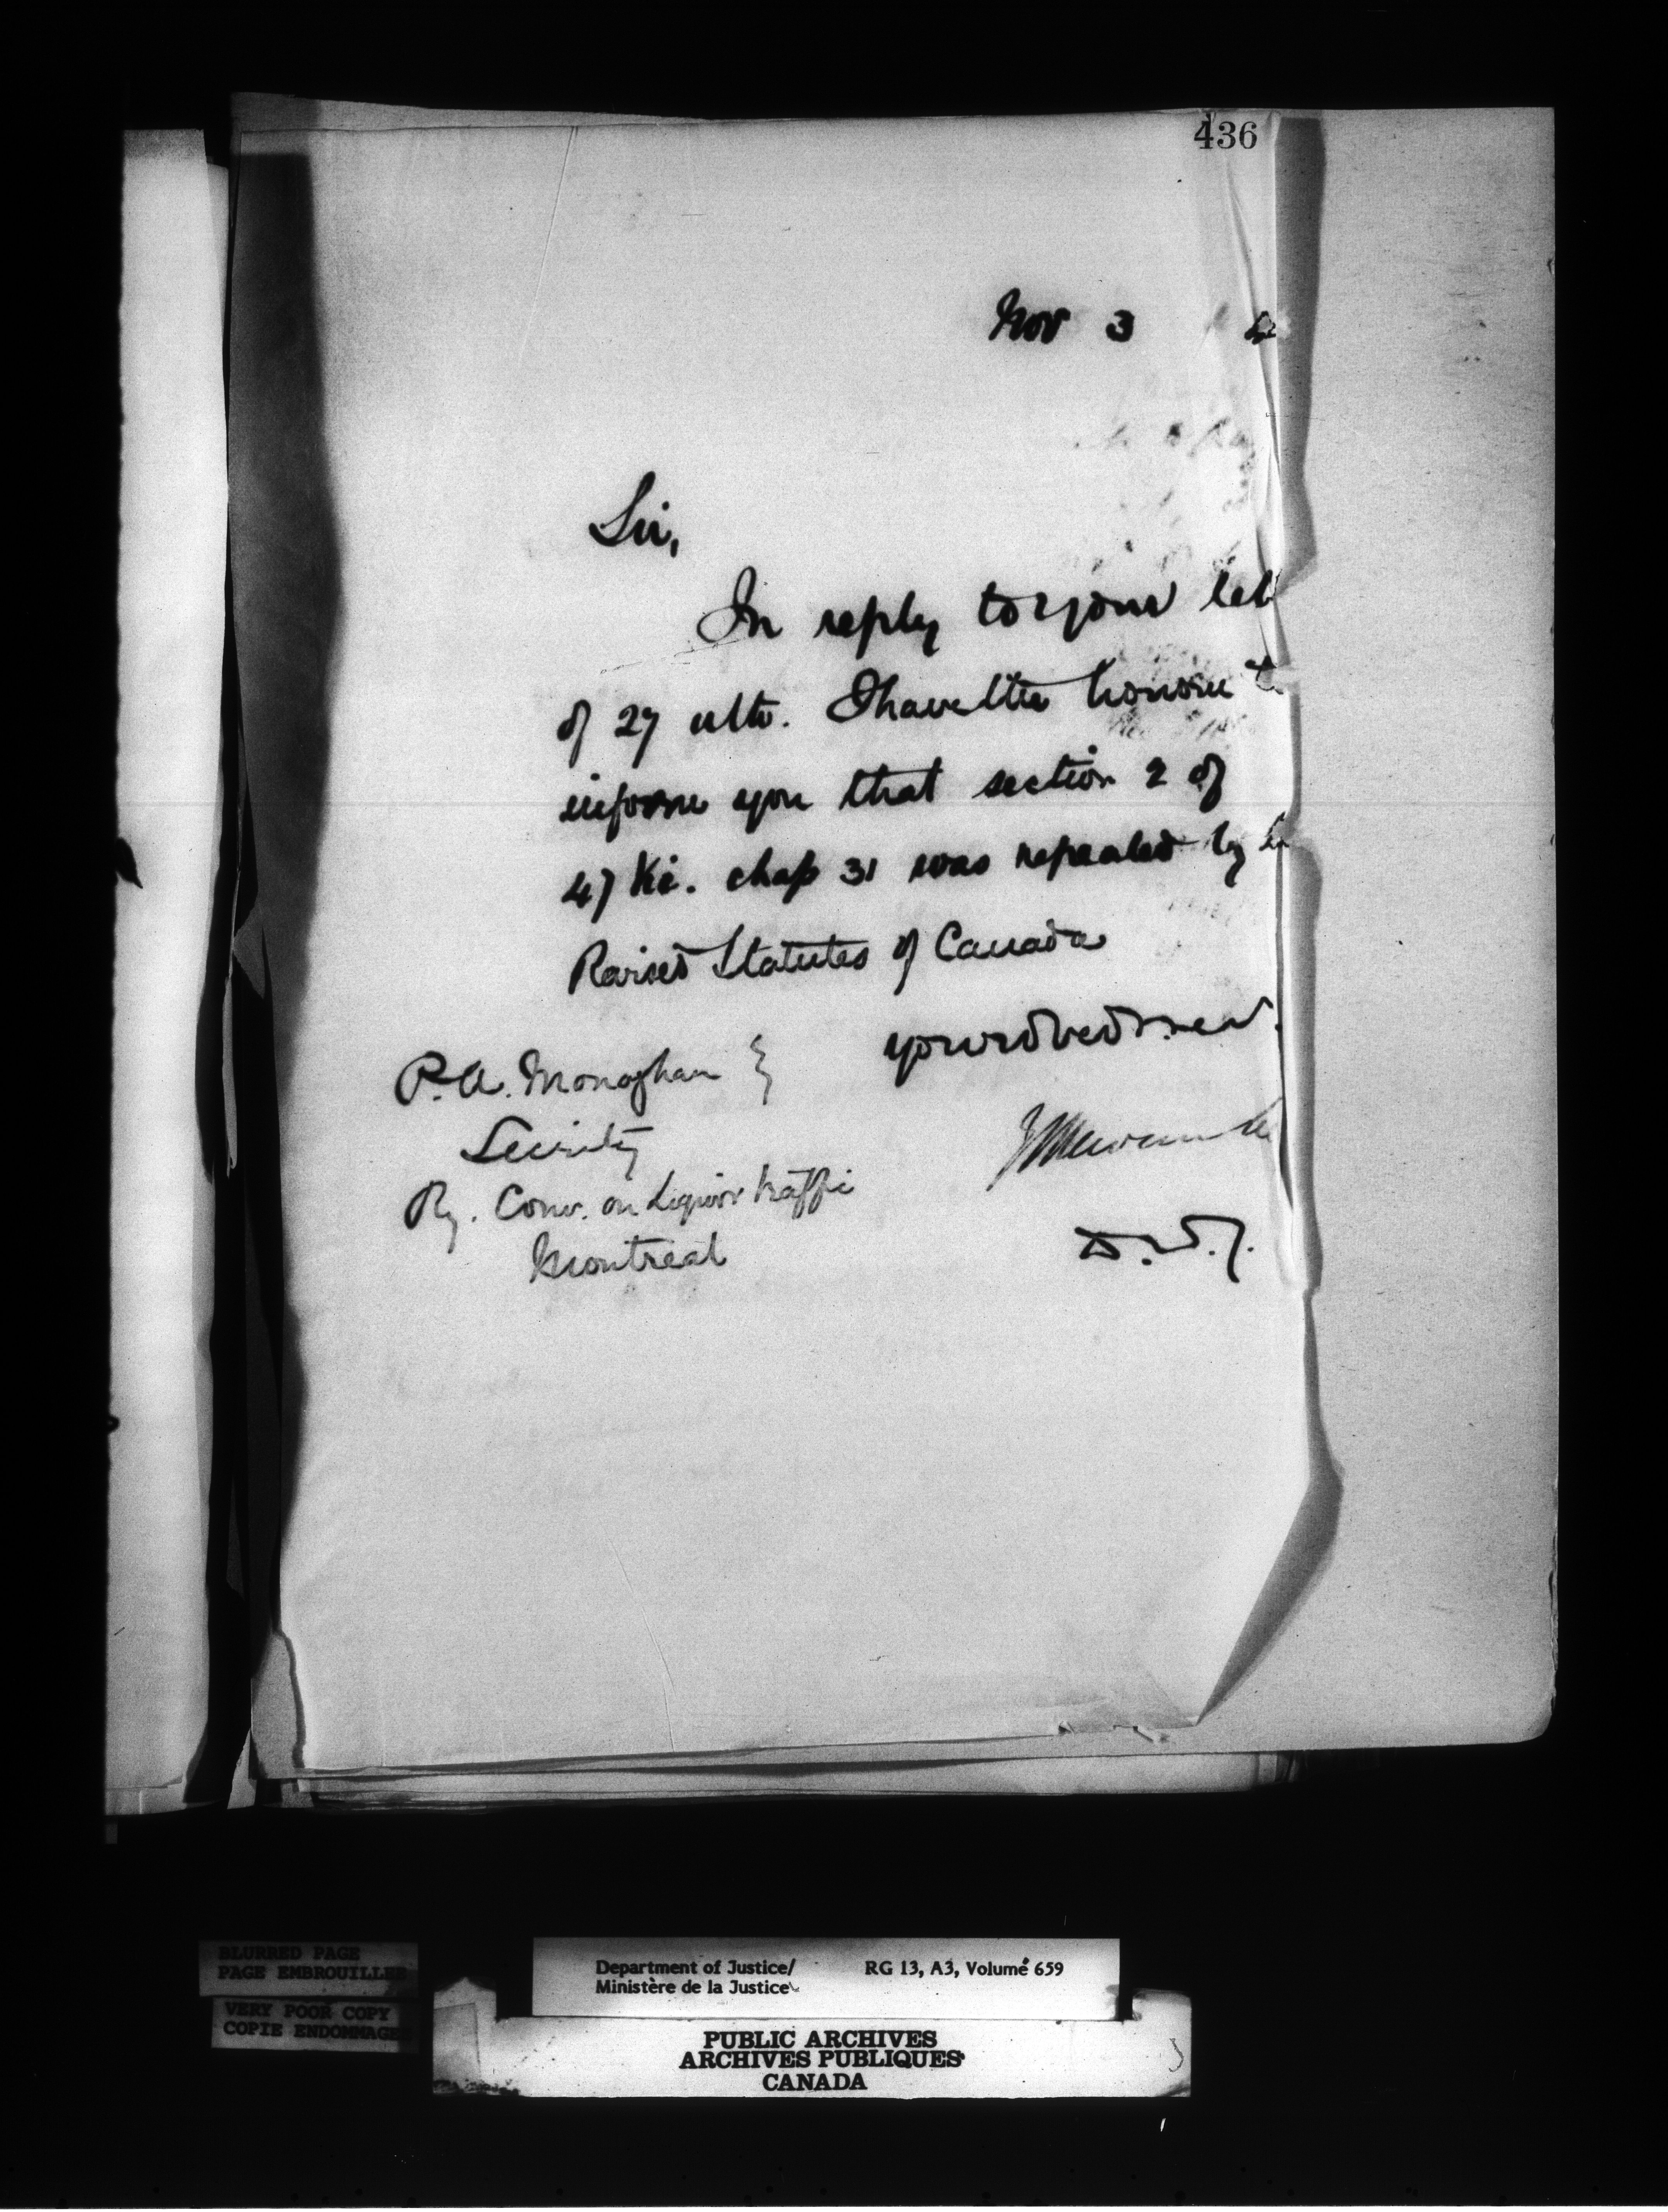 436
Nov 3
Sir,
In reply to your let
of 27 ulto. I have the honour t
inform you that section 2 of
47 Vic. chap 31 was repealed by
Revised Statutes of Canada
P. A. Monaghan
Ry. Com. on Liquor traffic
Montreal
D. M. J.
BLURRED PAGE
PAGE EMBROUILLEE
VERY POOR COPY
COPIE ENDOMMAGE
Department of Justice/ RG 13, A3, Volume 659
Ministère de la Justice
PUBLIC ARCHIVES
ARCHIVES PUBLIQUES
CANADA